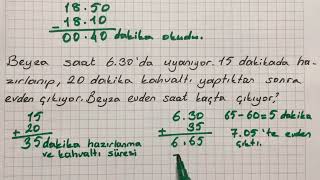 18.50
- 18.10
00.40 dakika okudu.
Beyza saat 6.30'da uyanıyor. 15 dakikada ha-
zırlanıp, 20 dakika kahvaltı yaptıktan sonra
evden çıkıyor. Beyza evden saat kaçta çıkıyor?
15 6.30 65-60=5 dakika
+ 20 + 35 7.05'te evden
35 dakika hazırlanma 6.65 çıktı.
ve kahvaltı süresi